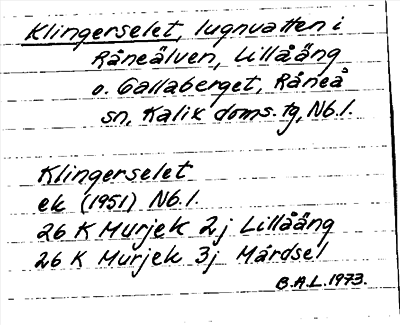 Klingerselet, lugnvatten i
Råneälven, Lillåäng
o. Gallaberget, Råneå
sn, Kalix doms. tg, Nb. l.
Klingerselet
ek (1951) Nb. l.
26 K Murjek 2j Lillåäng
26 K Murjek 3j Mårdsel
B.A.L. 1973.